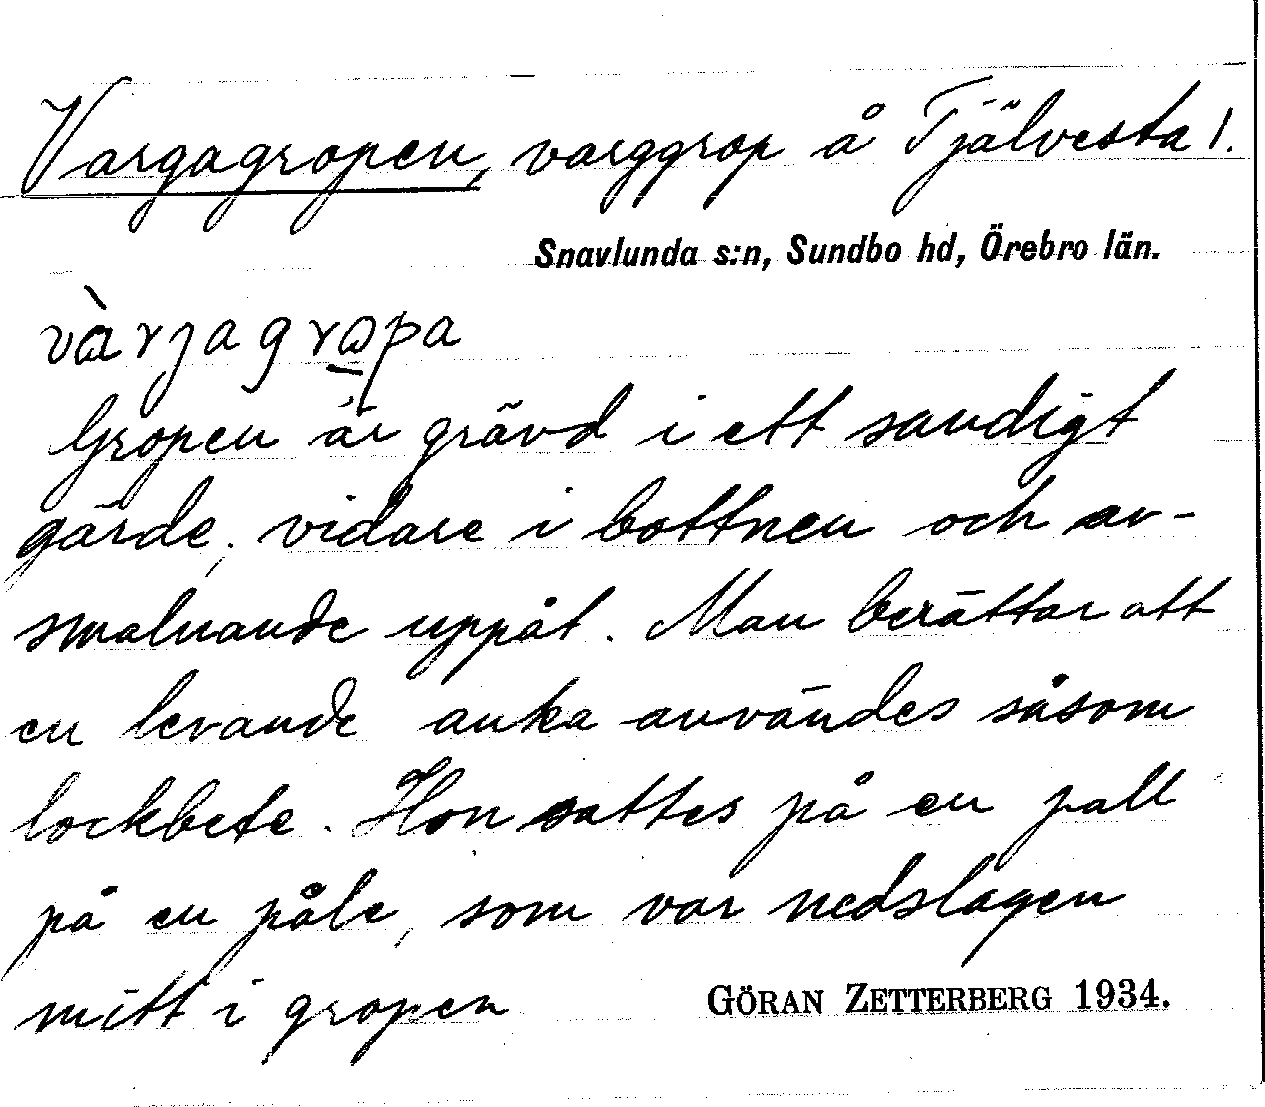 Vargagropen, varggrop å Tjälvesta 1.
Snavlunda s:n, Sundbo hd, Örebro län.
vàrjagropa
Gropen är grävd i ett sandigt
gärde, vidare i bottnen och av-
smalnande uppåt. Man berättar att
en levande anka användes såsom
lockbete. Hon sattes på en pall
på en påle, som var nedslagen
mitt i gropen
GÖRAN ZETTERBERG 1934.